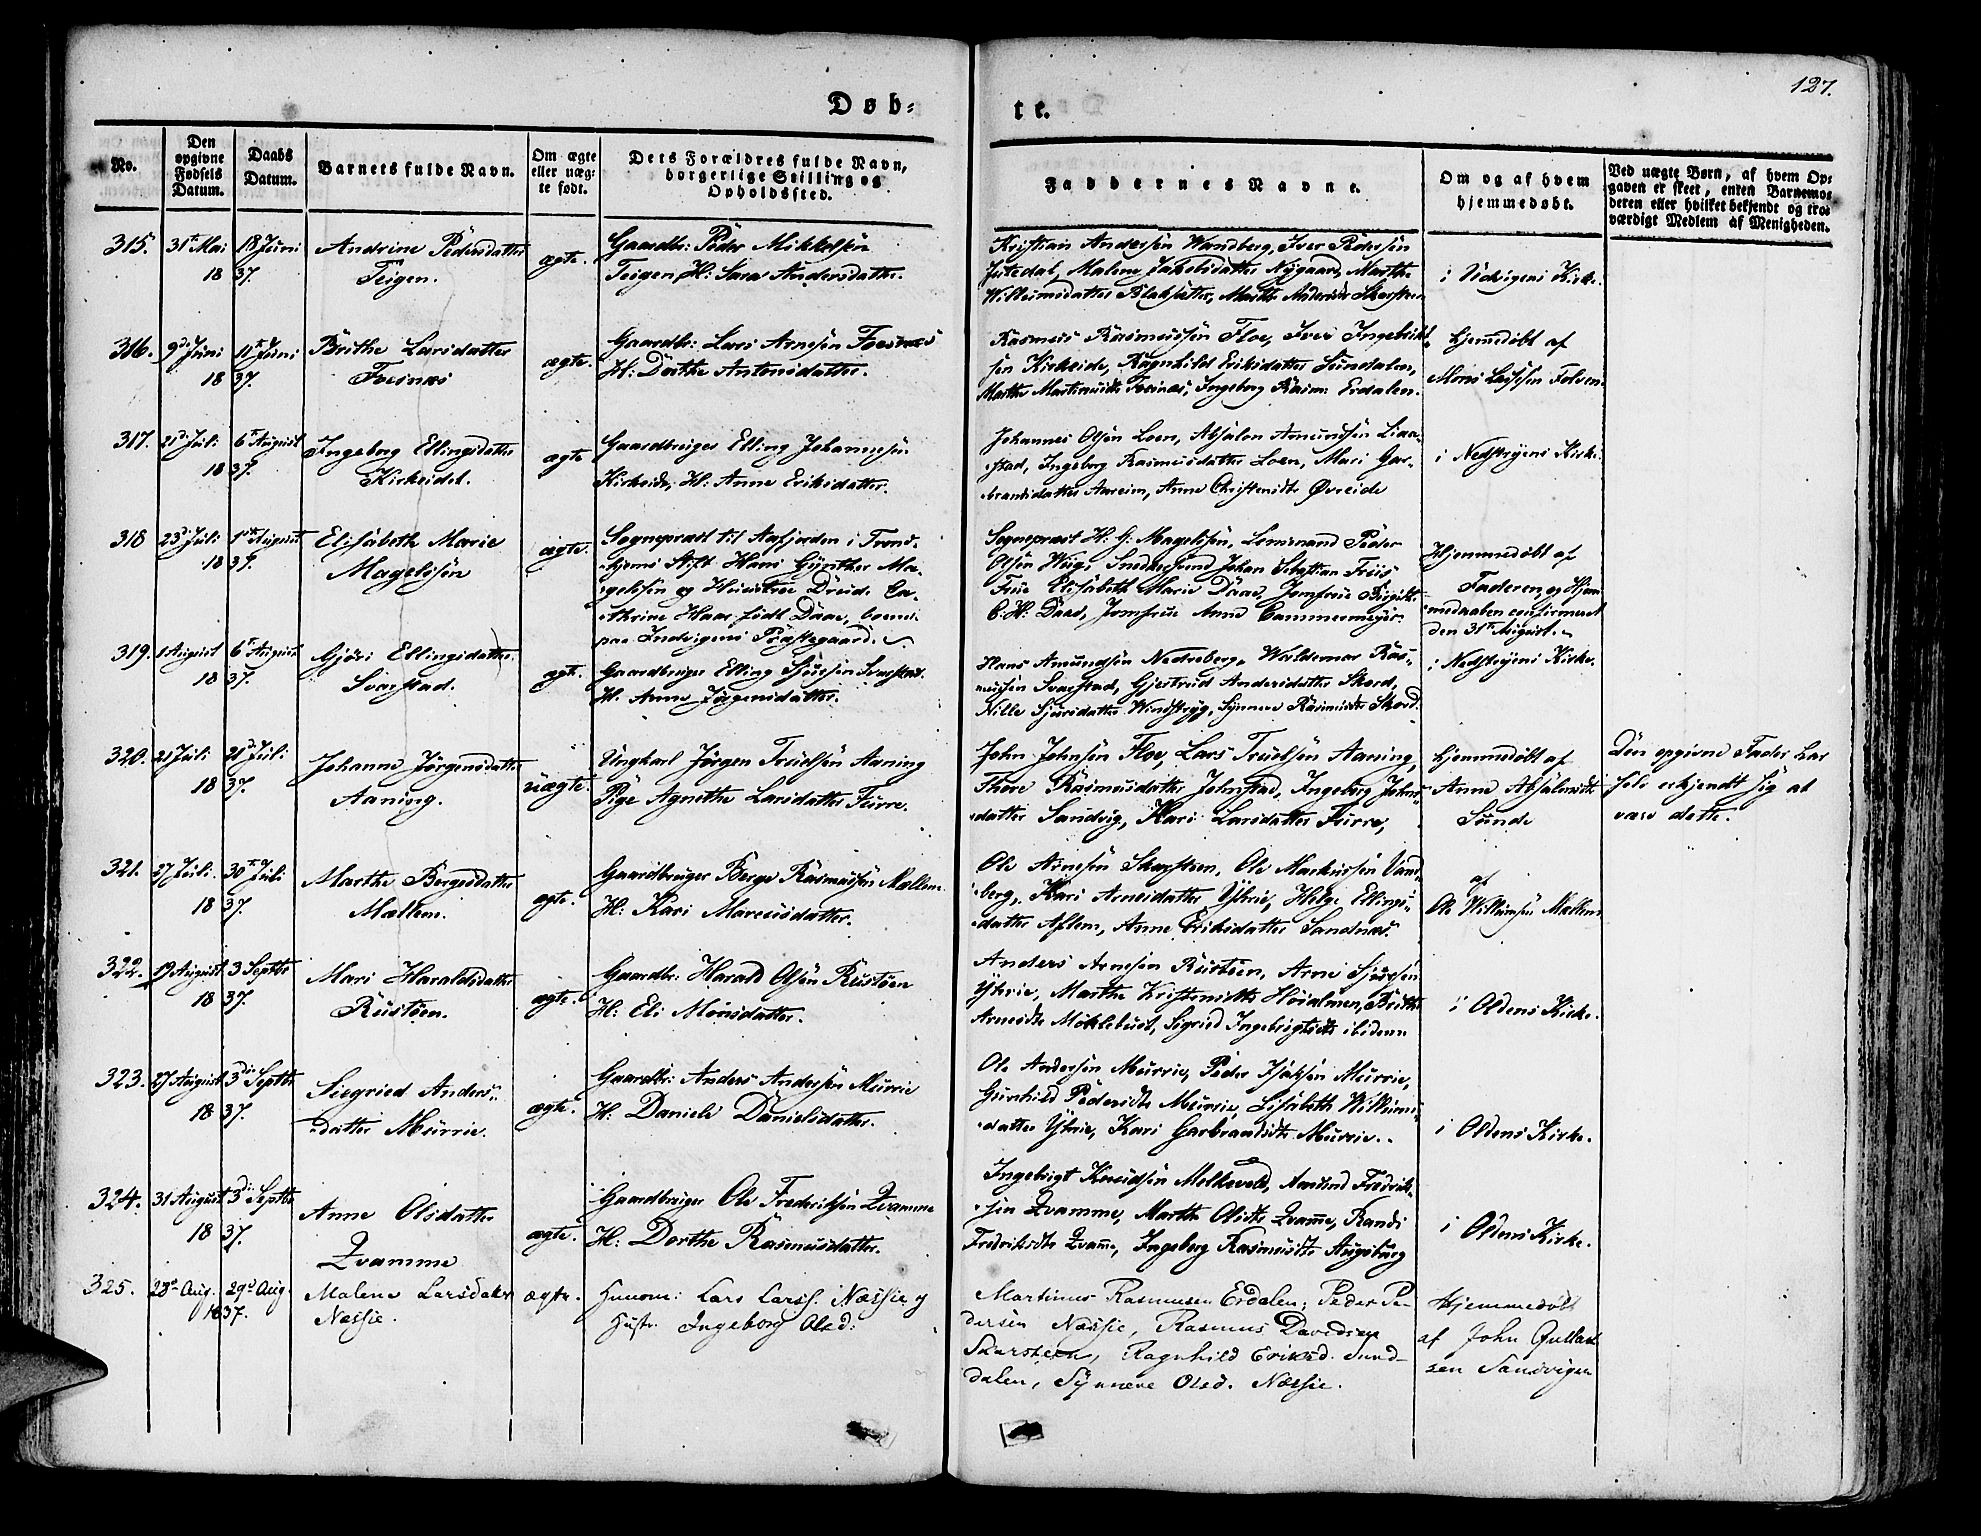 127.
Døb-
te.
No.
Den
opgivne
Fødsels
Datum.
Daabs
Datum.
Barnets fulde Navn.
Om ægte
eller uæg-
te født.
Dets Forældres fulde Navn,
borgerlige Stilling og
Opholdssted.
Faddernes Navne.
Om og af hvem
hjemmedøbt.
Ved uægte Børn, af hvem Op-
gaven er skeet, enten Barnemo-
deren eller hvilket bekjendt og tro-
værdigt Medlem af Menigheden.
315. 31te Mai 18 Juni
1837.
Andrine Pedersdatter
Teigen.
ægte.
Gaardbr: Peder Mikkelsen
Teigen, H: Sara Andersdatter.
Kristian Andersen Wandberg, Iver Pedersen
Justedal, Malene Jakobsdatter Nygaard, Marthe
Willumsdatter Blaksæter, Marthe Andersdr Skarsteen
i Udvigens Kirke.
316. 9de Juni 11te Juni
1837.
Brithe Larsdatter
Fosnæs
ægte.
Gaardbr: Lars Arnesen Fosnæs
H: Dorthe Antonsdatter.
Rasmus Rasmussen Floe, Iver Ingebrikt-
sen Kirkeide, Ragnhild Eriksdatter Sundalen,
Marthe Martinusdtr Fosnæs, Ingeborg Rasm: Erdalen.
hjemmedøbt af
Mons Lassesen Folven.
317. 21de Juli 6te August
1837.
Ingeborg Ellingsdatter
Kirkeidet.
ægte
Gaardbruger Elling Johannesen
Kirkeide, H: Anne Eriksdatter.
Johannes Olsen Loen, Absalon Amundsen Liaa-
stad, Ingeborg Rasmusdatter Loen, Mari Gar-
brandsdatter Aareim, Anne Christensdtr Øvreide
i Nedstryens Kirke.
318 23de Juli 1ste August
1837.
Elisabeth Marie
Magelssen
ægte.
Sognepræst til Aafjorden i Trond-
hjems Stift Hans Gynther Ma-
gelssen og Hustroe Dreide Ca-
thrine Haar født Daae, boend.
paa Indvigens Præstegaard.
Sognepræst H: G: Magelssen, Lensmand Peder
Olsen Wiig, Snedkersvend Johan Sebastian Friis
Frue Elisabeth Marie Daae, Jomfrue Birgitte
C: H: Daae, Jomfrue Anne Cammermeyer.
Hjemmedøbt af
Faderen og Hjem-
medaaben confirmeret
den 31te August.
319. 1 August 6te August
1837.
Gjøri Ellingsdatter
Svarstad.
ægte.
Gaardbruger Elling Sjursen Svarstad
H: Anne Jørgensdatter.
Hans Amundsen Nedreberg, Waldemar Ras-
mussen Svarstad, Gjertrud Andersdatter Skord,
Nille Sjursdatter Windstryg, Synneve Rasmusdtr Skord.
i Nedstryens Kirke.
320. 21 Juli 21de Juli
1837.
Johanne Jørgensdatter
Aaning.
uægte.
Ungkarl Jørgen Truelsen Aaning
Pige Agnethe Larsdatter Furre.
John Johnsen Floe, Lars Truelsen Aaning,
Thore Rasmusdatter Johnstad, Ingeborg Johns-
datter Sandvig, Kari Larsdatter Furre,
hjemmedøbt af
Anne Absalonsdtr
Sunde
Den opgivne Fader har
selv erkjendt sig at
være dette.
321. 27 Juli. 30te Juli
1837.
Marthe Bergesdatter
Mællem.
ægte.
Gaardbruger Berge Rasmussen Mællem
H: Kari Marcusdatter.
Ole Arnesen Skarsteen, Ole Markussen Vand-
berg, Kari Arnesdatter Ytrie, Helge Ellings-
datter Aflem, Anne Eriksdatter Sandnæs.
af
Ole Willumsen Mællem
322. 19 August 3 Septbr
1837.
Mari Haraldsdatter
Rustøen.
ægte.
Gaardbr: Harald Olsen Rustøen
H: Eli Monsdatter.
Anders Arnesen Rustøen, Arne Sjursen
Ytrie, Marthe Kristensdtr Horalmen, Brithe
Arnesdtr Møklebust, Sigried Ingebrigtsdtr ibidem
i Oldens Kirke.
323. 27 August 3die Septbr
1837.
Siegried Anders-
datter Murrie.
ægte.
Gaardbr: Anders Andersen Murrie
H: Daniele Danielsdatter.
Ole Andersen Murrie, Peder Isaksen Murrie,
Gunhild Pedersdtr Murrie, Lisabeth Willums-
datter Ytrie, Kari Garbrandsdtr Murrie.
i Oldens Kirke.
324. 31 August 3die Septbr
1837.
Anne Olsdatter
Qvamme
ægte.
Gaardbruger Ole Frederiksen Qvamme
H: Dorthe Rasmusdatter.
Ingebrigt Knudsen Melkevold, Amund Fredrik-
sen Qvamme, Marthe Olsdtr Qvamme, Randi
Fredriksdtr Qvamme, Ingeborg Rasmusdtr Augsburg
i Oldens Kirke.
325. 28de Aug. 29de Aug.
1837.
Malene Larsdatter
Næssie.
ægte.
Husm: Lars Larss. Næssie og
Hustr. Ingeborg Olsd:
Martinus Rasmusen Erdalen, Peder Pe-
dersen Næssie, Rasmus Davidsen
Skarsteen, Ragnhild Eriksd. Sund-
dalen, Synneve Olsd. Næssie.
Hjemmedøbt
af John Gullak-
sen Sandvigen